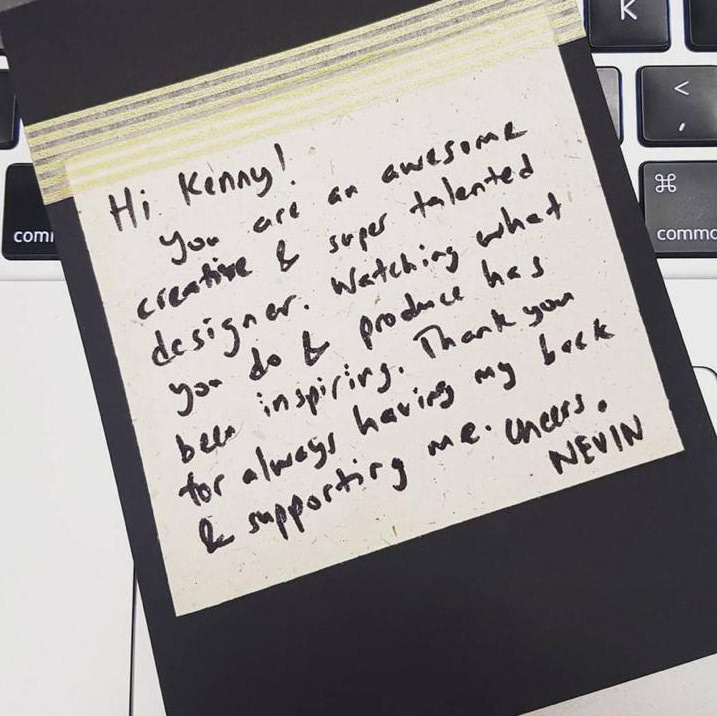 Hi Kenny!
You are an awesome
creative & super talented
designer. Watching what
you do & produce has
been inspiring. Thank you
for always having my back
& supporting me. Cheers.
NEVIN
K
<
,
⌘
comm
com